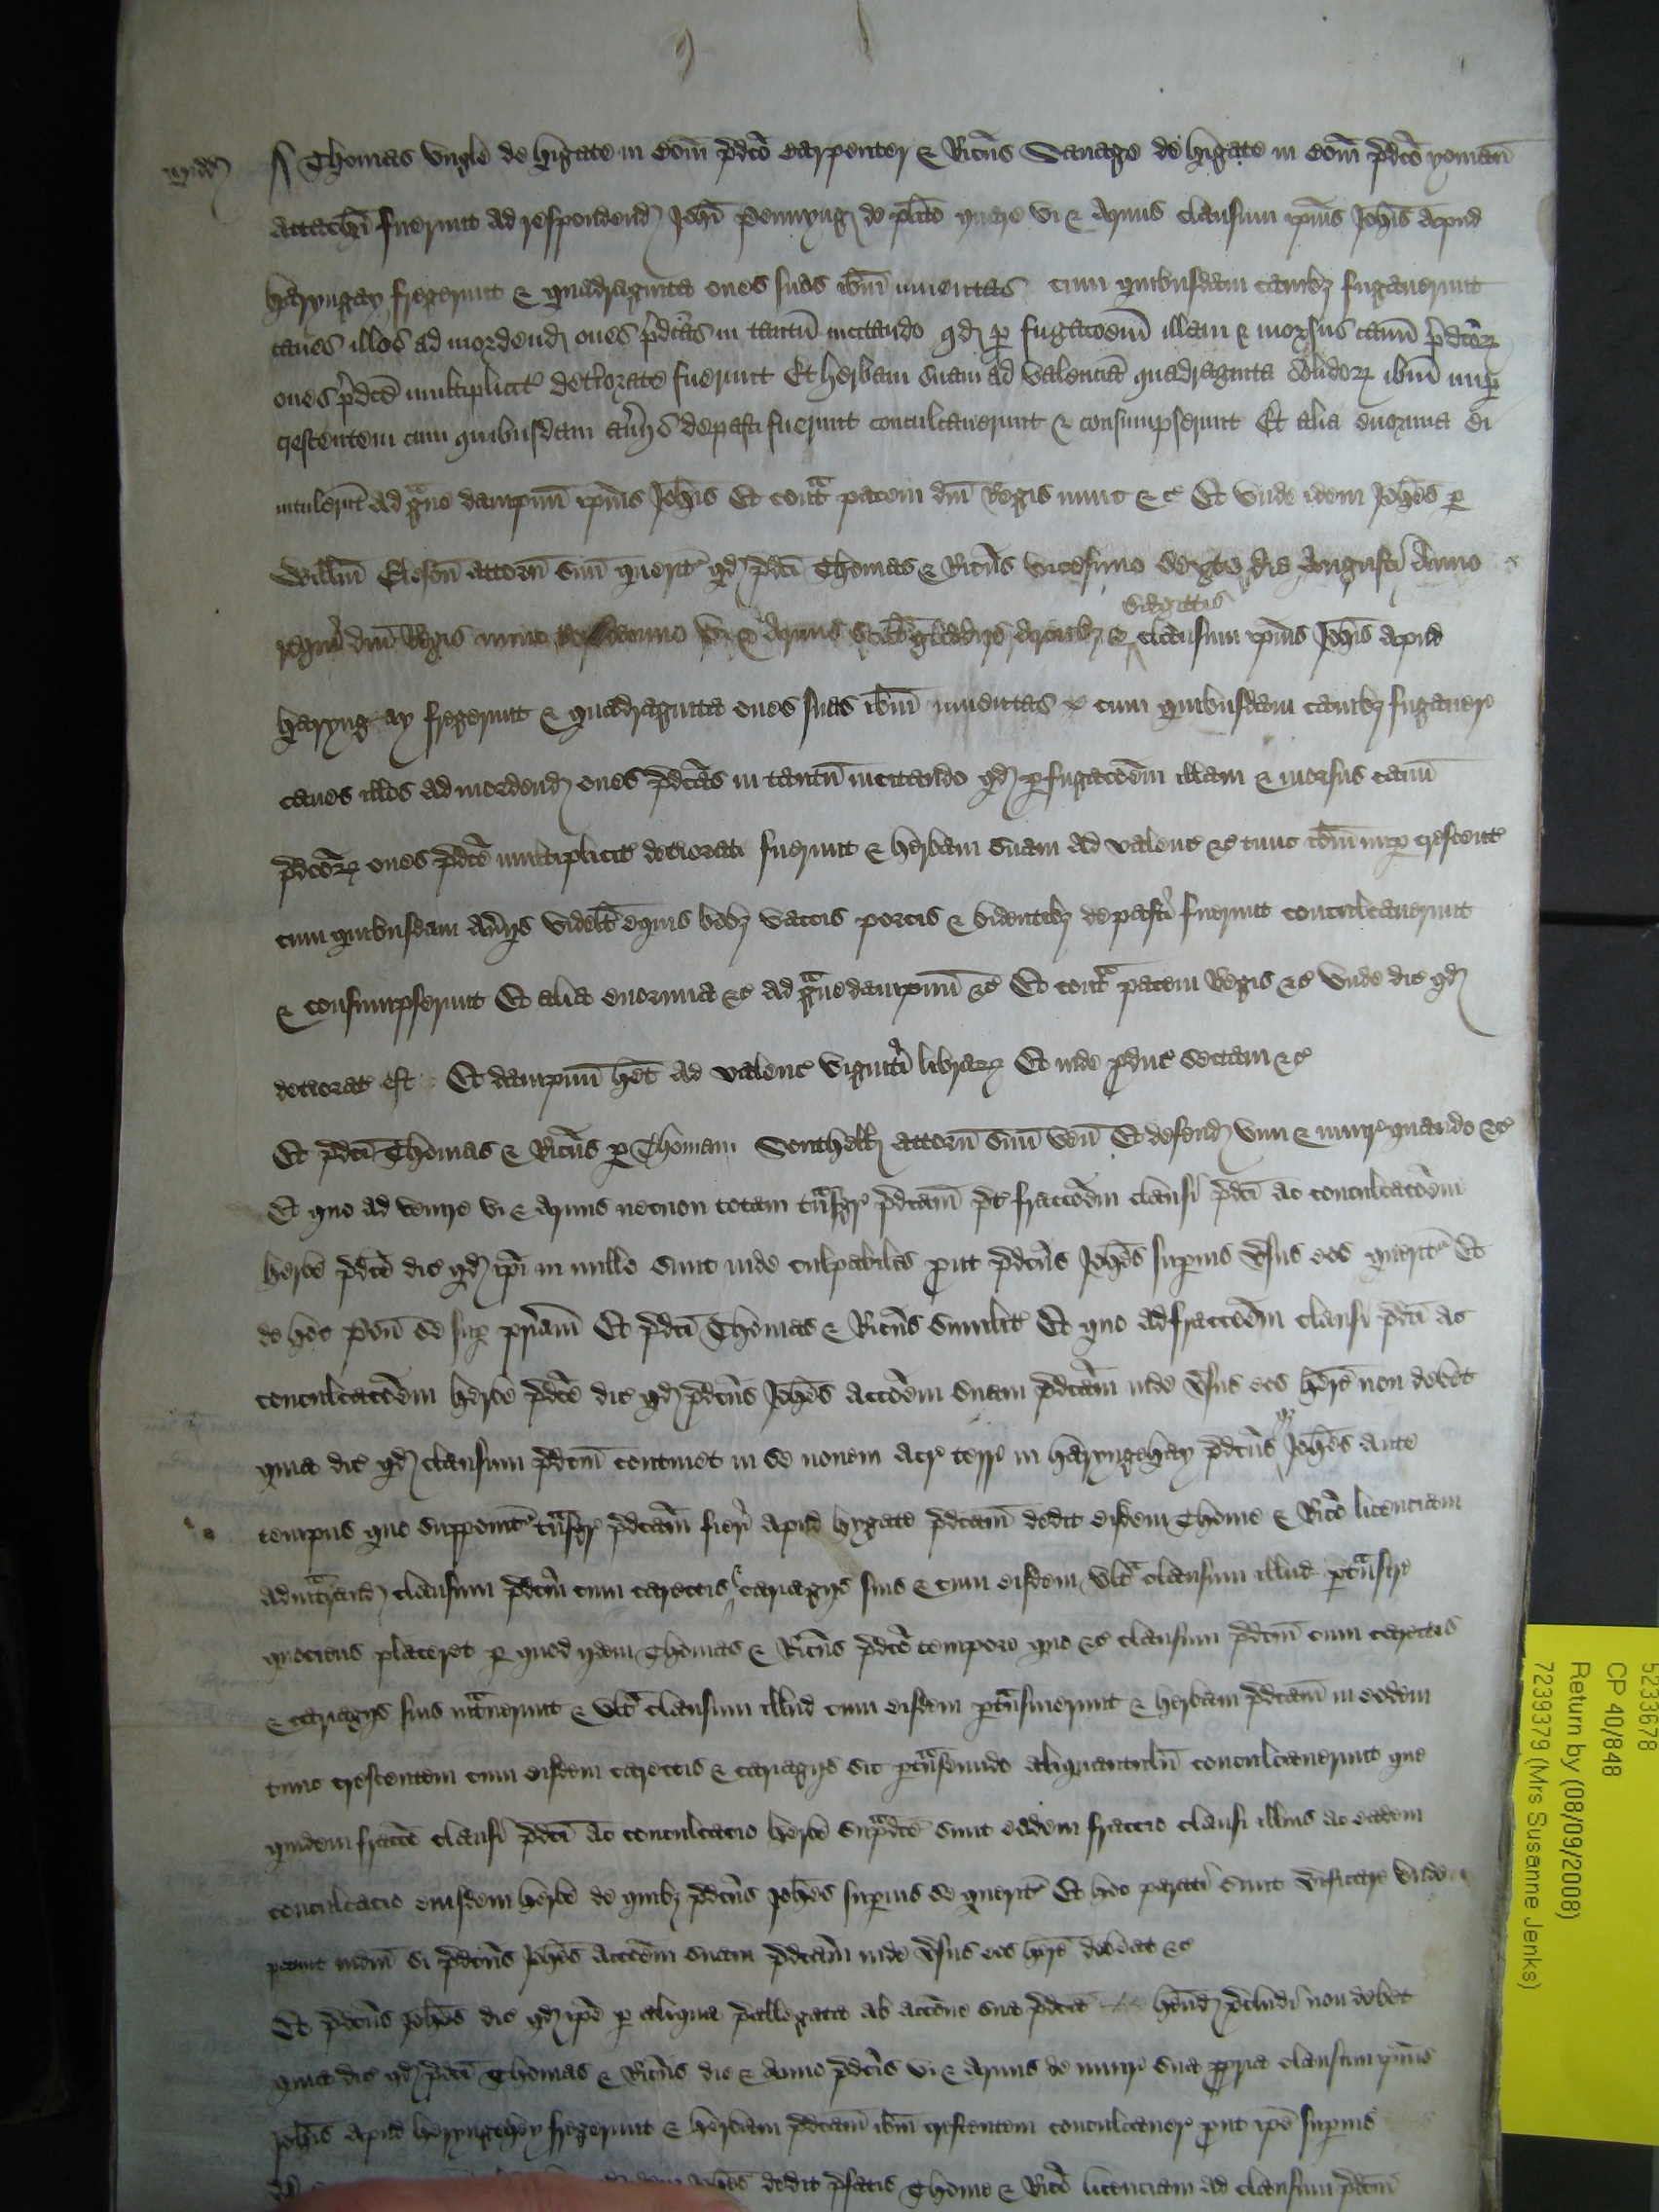 Midd
Thomas Vngle de hygate in Com pdco Carpenter & Ricus Sauage de higate in Com pdco yoman
attachi fuerunt ad respondend Johi Pennyng de plito quare vi & armis clausum ipius Johis apud
haryngay fregerunt & quadraginta oues suas ibm inuentas cum quibusdam canibz fugauerunt
canes illos ad mordend oues pdcas in tantu incitando qd p fugacoem illam & morsus canu pdcor
oues pdce multiplicit deteriorate fuerunt Et herbam suam ad valencia quadraginta solidor ibm nup
crescentem cum quibusdam aueriis depasti fuerunt conculcauerunt & consumpserunt Et alia enormia ei
intulerut ad graue dampnu ipius Johis Et contra pacem dni Regis nunc &c Et vnde idem Johes p
Willm attorn suu querit qd pdci Thomas & Ricus vicesimo die Augusti Anno
regni dni Regis nunc vi & armis scilt gladiis arcubz & sagittis clausum ipius Johis apud
haryngay fregerunt & quadraginta oues suas ibm inuentas cum quibusdam canibz fugauer
canes illos ad mordend oues pdcas in tantu incitando qd p fugacoem illam & morsus canu
pdcor oues pdce multiplicit deteriorati fuerunt & herbam suam ad valenc &c tunc ibm nup crescent
cum quibusdam auiis videlt equis bobz vaccis porcis & bidentibz depasti fuerunt conculcauerunt
& consumpserunt Et alia enormia &c ad graue dampnu &c Et contra pacem Regis &c vnde dic qd
deteriorat est Et dampnu het ad valenc viginti librar Et inde pduc sectam &c
Et pdci Thomas & Ricus p Thomam attorn suu ven Et defend vim & iniur quando &c
Et quo ad venire vi & armis necnon totam trnsgr pdcam pt fraccoem clausi pdci ac conculcacoem
herbe pdce dic qd ipi in nullo sunt inde culpabiles put pdcus Johes superius vsus eos querit Et
de hoc pon se sup priam Et pdci Thomas & Ricus similit Et quo ad fraccoem clausi pdci ac
conculcacoem herbe pdce dic qd pdcus Johes accoem suam pdcam inde vsus eos here non debet
quia dic qd clausum pdcm continet in se nouem acr terre in haryngehay pdcus Johes ante
tempus quo supponit trnsgr pdcam fieri apud hygate pdcam dedit eisdem Thome & Rico licenciam
ad intrand clausum pdcm cum carectis & cariagiis suis & cum eisdem vlt clausum illud ptransire
quociens placeret p quod iidem Thomas & Ricus pdco tempore quo &c clausum pdcm cum carectis
& cariagiis suis intrauerunt & vlt clausum illud cum eisdem ptransiuerunt & herbam pdcam in eodem
tunc crescentem cum eisdem carectis & cariagiis sic ptranseundo aliquantulu conculcauerunt que
quidem fraccio clausi pdci ac conculcacio herbe supdce sunt eadem fraccio clausi illius ac eadem
conculcacio eiusdem herbe de quibz pdcus Johes superius se querit Et hoc parati sunt vificare vnde
petunt iudm si pdcus Johes accoem suam pdcam inde vsus eos here debeat &c
Et pdcus Johes dic qd ipe p aliqua pallegata ab accone sua pdca hend pcludi non debet
quia dic qd pdci Thomas & Ricus die & anno pdcis vi & armis de iniur sua ppria clausum ipius
Johis apud haryngehey fregerunt & herbam pdcam ibm crescentem conculcauer put ipe superius
Johes dedit pfatis Thome & Rico licenciam ad clausum pdcm
5233678
CP 40/848
Return by (08/09/2008)
7239379 (Mrs Susanne Jenks)